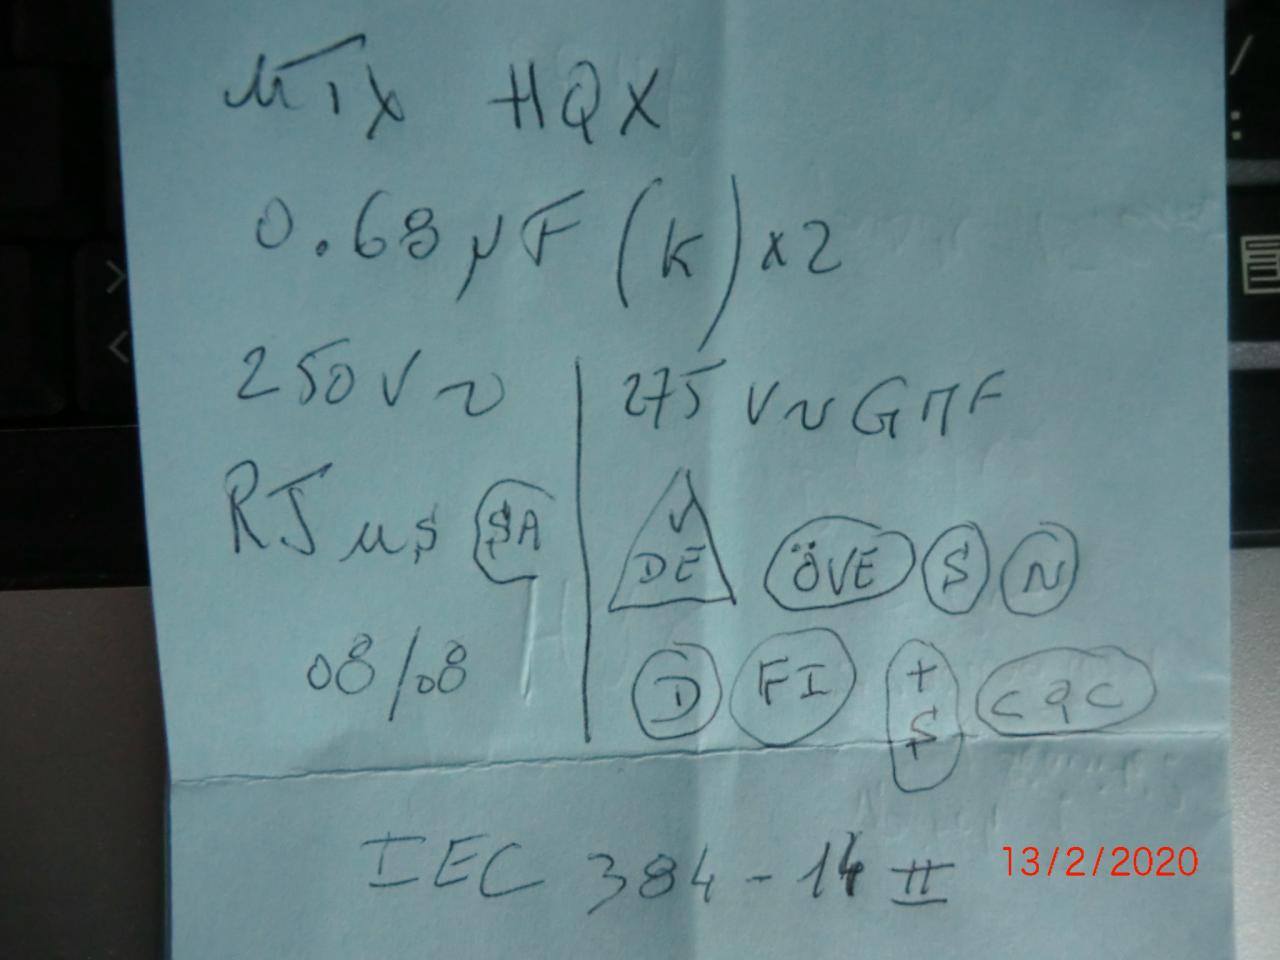 MTX HQX
0.68 µF (K) x2
250V~ | 275 V~ GMF
RJ us SA
VDE ÖVE S N
08/08
D FI +S CQC
IEC 384-14 II
13/2/2020